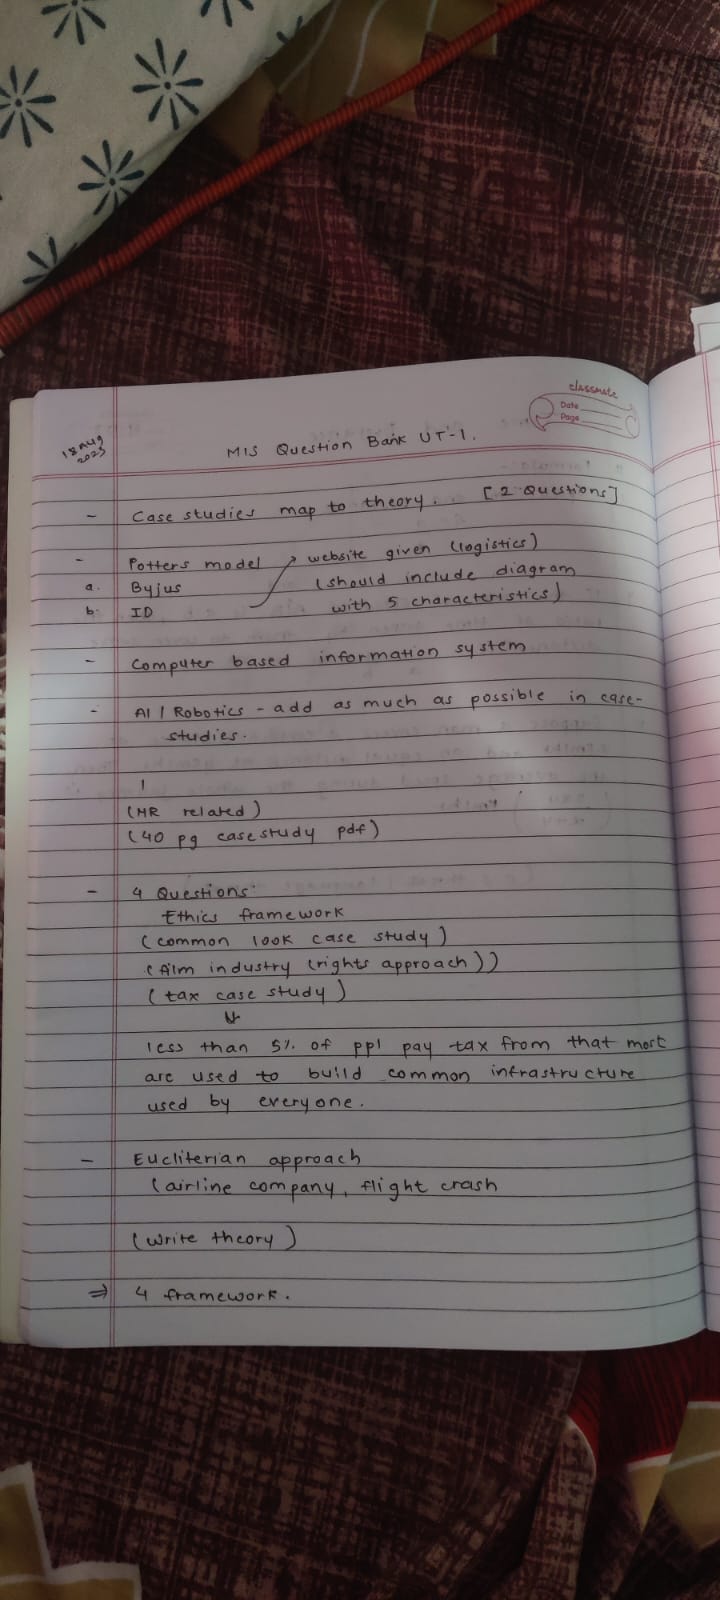 classmate
Date
Page
18 Aug
2023
MIS Question Bank UT-1.
- Case studies map to theory. [2 Questions]
- Potters model → website given (logistics)
a. Byjus (should include diagram
b. ID with 5 characteristics)
- Computer based information system
- AI / Robotics - add as much as possible in case-
studies.
(HR related)
(40 pg case study pdf)
- 4 Questions:
Ethics framework
(common look case study)
(film industry (rights approach))
(tax case study)
↓
less than 5% of ppl pay tax from that most
are used to build common infrastructure
used by everyone.
- Eucliterian approach
(airline company, flight crash
(write theory)
⇒ 4 framework.